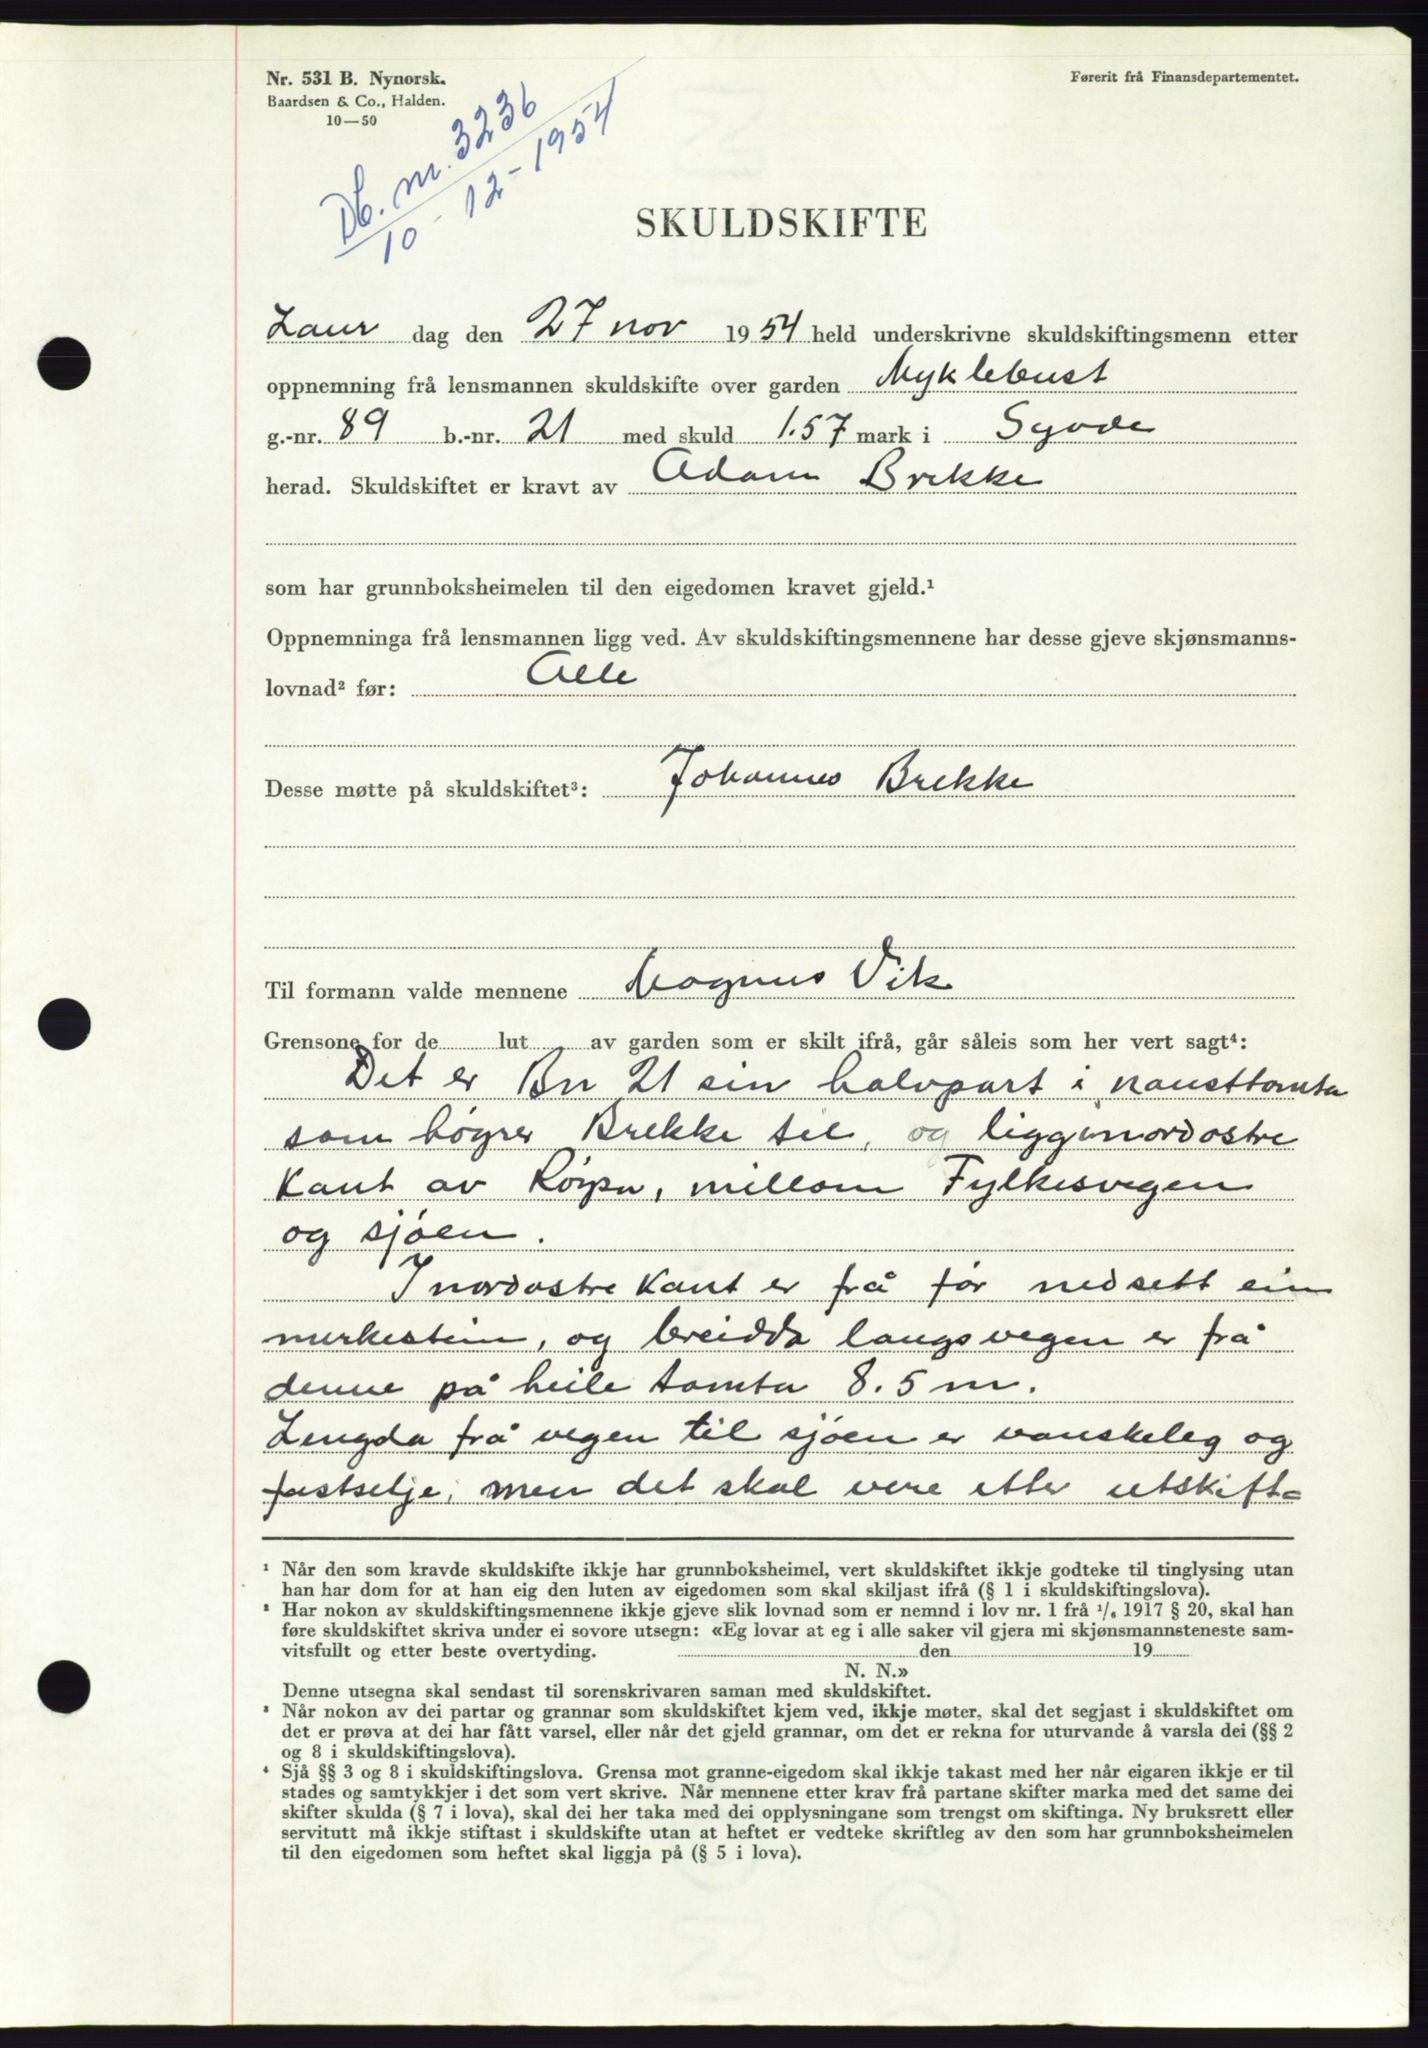 Nr. 531 B. Nynorsk.
Baardsen & Co., Halden.
10—50
Førerit frå Finansdepartementet.
Db. nr. 3236
10 - 12 - 1954
SKULDSKIFTE
Laur dag den 27 nov 1954 held underskrivne skuldskiftingsmenn etter
oppnemning frå lensmannen skuldskifte over garden Myklebust
g.-nr. 89 b.-nr. 21 med skuld 1.57 mark i Syvde
herad. Skuldskiftet er kravt av Adam Brekke
som har grunnboksheimelen til den eigedomen kravet gjeld.¹
Oppnemninga frå lensmannen ligg ved. Av skuldskiftingsmennene har desse gjeve skjønsmanns-
lovnad² før: Alle
Desse møtte på skuldskiftet³: Johannes Brekke
Til formann valde mennene Magnus Vik
Grensone for de lut av garden som er skilt ifrå, går såleis som her vert sagt⁴:
Det er Bn 21 sin halvpart i nausttomta
som høyrer Brekke til, og ligg i nordostre
kant av Røysa, millom Fylkesvegen
og sjøen.
I nordostre kant er frå før nedsett ein
merkestein, og breidda langs vegen er frå
denne på heile tomta 8.5 m.
Lengda frå vegen til sjøen er vanskeleg og
fastselje, men det skal vere etter utskift=
¹ Når den som kravde skuldskifte ikkje har grunnboksheimel, vert skuldskiftet ikkje godteke til tinglysing utan
han har dom for at han eig den luten av eigedomen som skal skiljast ifrå (§ 1 i skuldskiftingslova).
² Har nokon av skuldskiftingsmennene ikkje gjeve slik lovnad som er nemnd i lov nr. 1 frå ¹/₆ 1917 § 20, skal han
føre skuldskiftet skriva under ei sovore utsegn: «Eg lovar at eg i alle saker vil gjera mi skjønsmannsteneste sam-
vitsfullt og etter beste overtyding. den 19
N. N.»
Denne utsegna skal sendast til sorenskrivaren saman med skuldskiftet.
³ Når nokon av dei partar og grannar som skuldskiftet kjem ved, ikkje møter, skal det segjast i skuldskiftet om
det er prøva at dei har fått varsel, eller når det gjeld grannar, om det er rekna for uturvande å varsla dei (§§ 2
og 8 i skuldskiftingslova).
⁴ Sjå §§ 3 og 8 i skuldskiftingslova. Grensa mot granne-eigedom skal ikkje takast med her når eigaren ikkje er til
stades og samtykkjer i det som vert skrive. Når mennene etter krav frå partane skifter marka med det same dei
skifter skulda (§ 7 i lova), skal dei her taka med dei opplysningane som trengst om skiftinga. Ny bruksrett eller
servitutt må ikkje stiftast i skuldskifte utan at heftet er vedteke skriftleg av den som har grunnboksheimelen
til den eigedomen som heftet skal liggja på (§ 5 i lova).